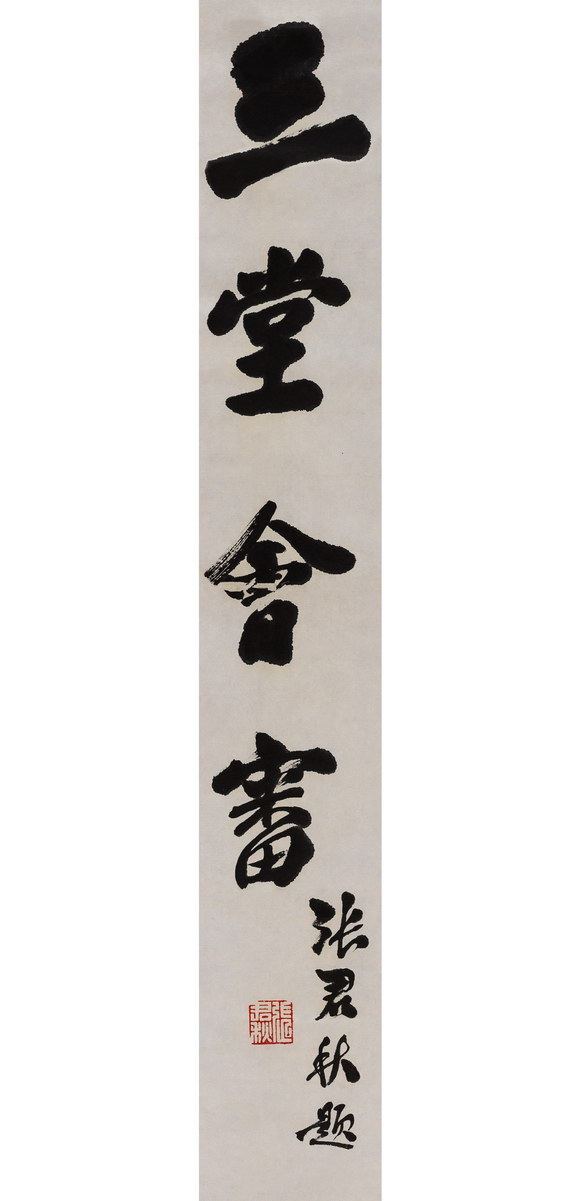 三堂會審
張君秋題
張君秋